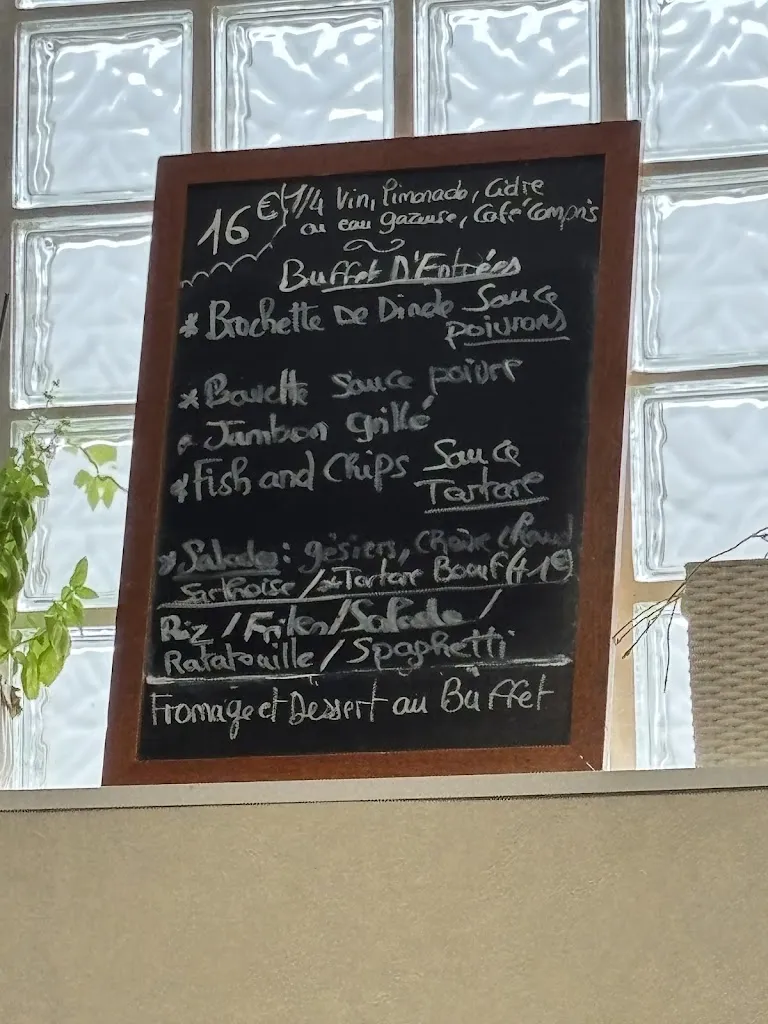 16 € 1/4 Vin, Limonade, Cidre
ou eau gazeuse, Café Compris
Buffet D'Entrées
* Brochette De Dinde Sauce
poivrons
* Bavette sauce poivre
* Jambon grillé
* Fish and Chips Sauce
Tartare
* Salade : gésiers, Chèvre chaud
Sarthoise / * Tartare Boeuf (+1€)
Riz / Frites / Salade /
Ratatouille / Spaghetti
Fromage et Dessert au Buffet